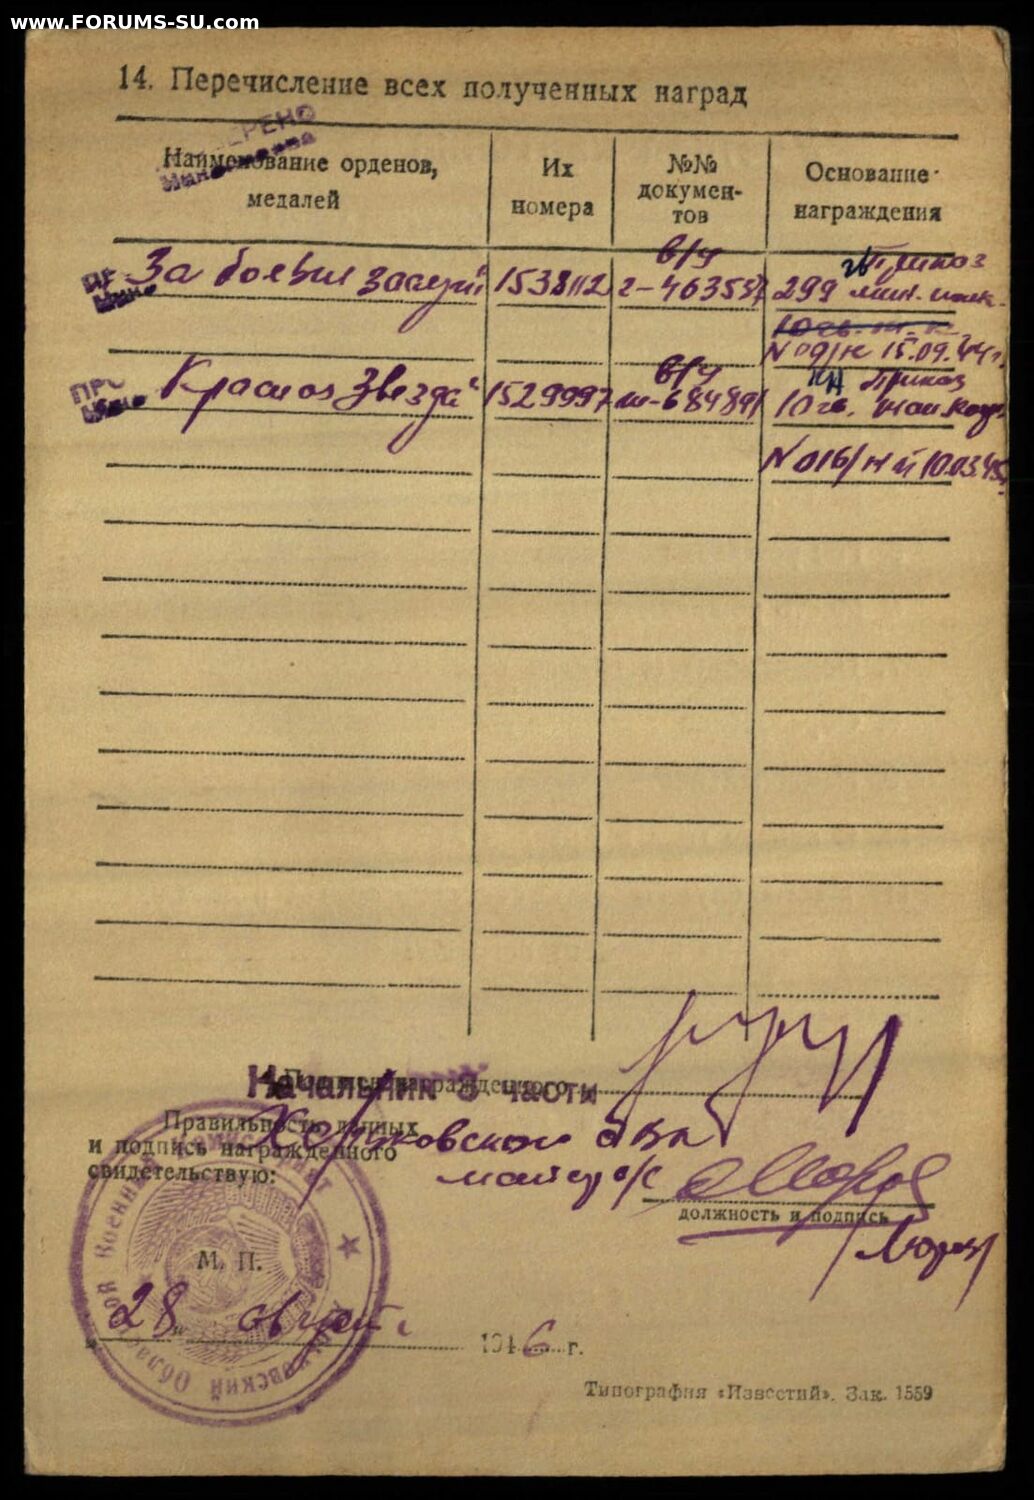 www.FORUMS-SU.com
14. Перечисление всех полученных наград
Наименование орденов, медалей
Их номера
№№ документов
Основание награждения
За боевые заслуги" 1538112 в/ч г-463557 гв Приказ 299 мин. полк.
10 гв. т. к.
N 09/н 15.09.44г.
Красноя Звезда" 1529997 в/ч ш-684891 Приказ 10 гв.
N 016/н 10.03.45
Подпись награжденного
Начальник 3 части
Правильность данных
Харьковского ОВК
и подпись награжденного
свидетельствую:
майор а/с
должность и подпись
М. П.
28 августа 1946 г.
Типография «Известий». Зак. 1559